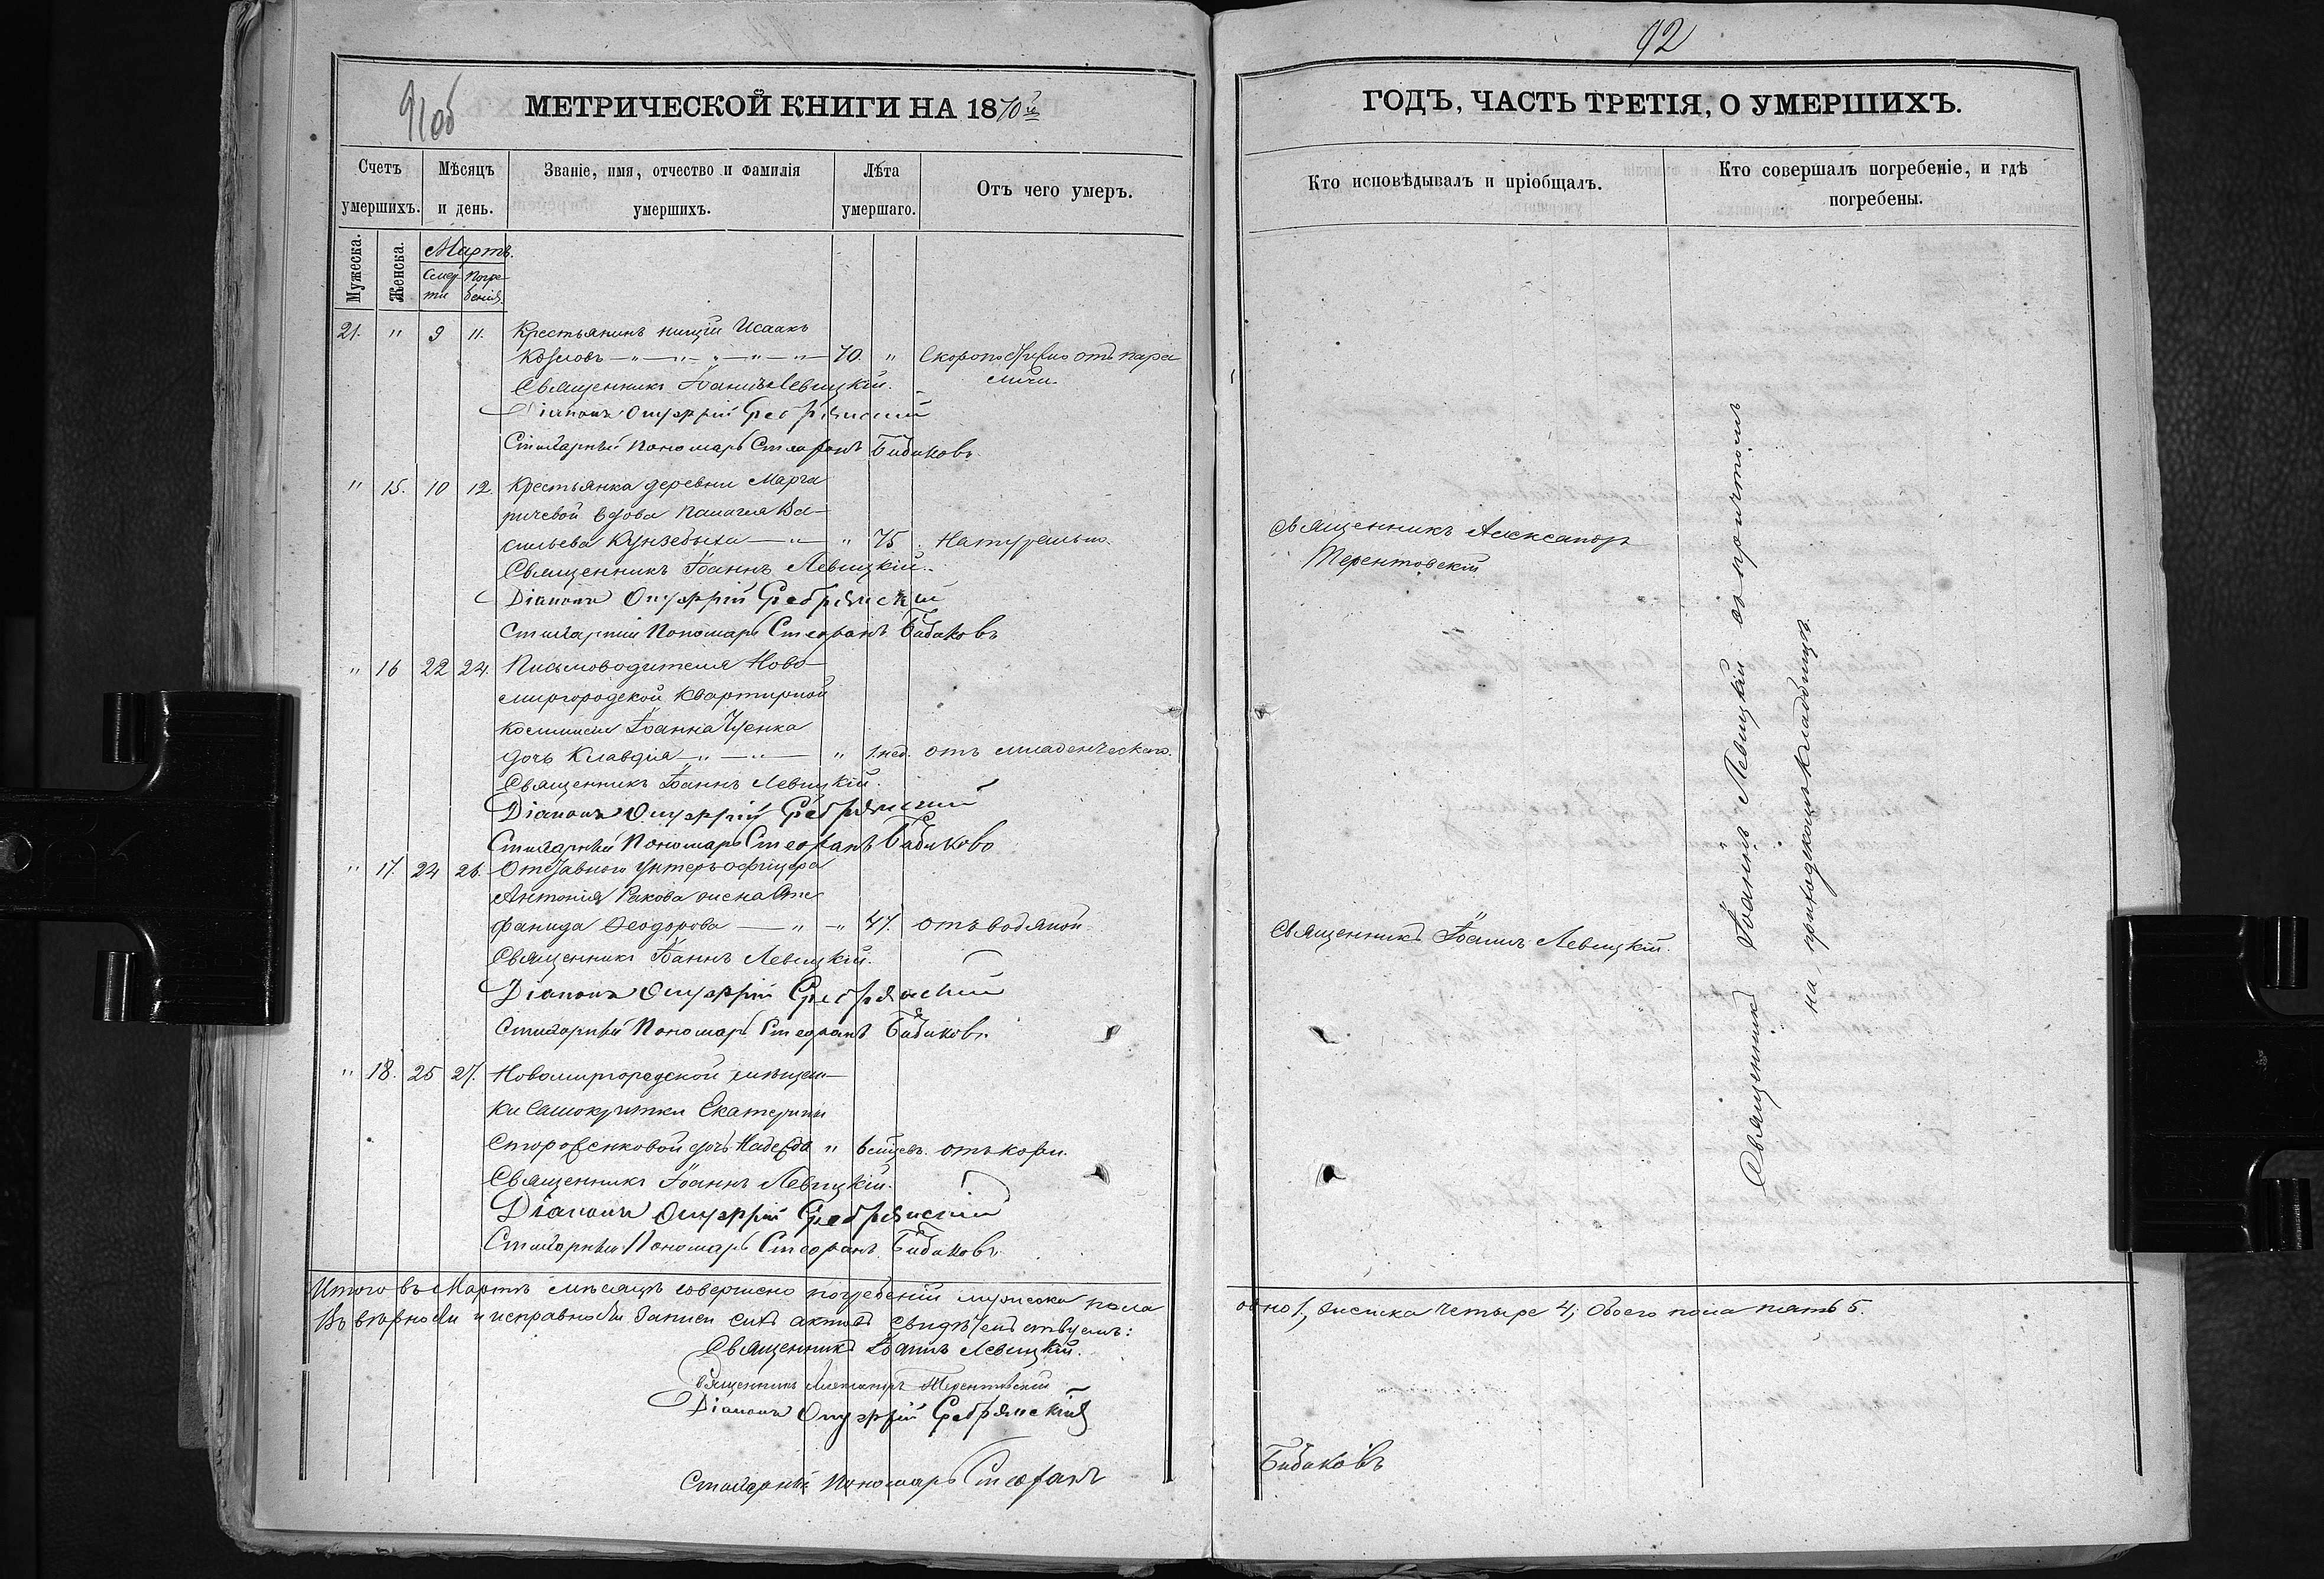 91об
МЕТРИЧЕСКОЙ КНИГИ НА 1870й
Счетъ умершихъ.
Мѣсяцъ и день.
Званіе, имя, отчество и фамилія умершихъ.
Лѣта умершаго.
Отъ чего умеръ.
Мужеска.
Женска.
Мартъ.
Смерти
Погребенія.
21. " 9 11. Крестьянинъ нищій Исаакъ
Козловъ 70. " Скоропостижно отъ пара
личи.
Священникъ Іоаннъ Левицкій.
Діаконъ Онуфрій Сребрянскій
Стихарный Пономарь Стефанъ Бибиковъ
" 15. 10 12. Крестьянка деревни Марга
ричевой вдова Палагея Ва-
сильева Кунзебыха " 75 Натурально.
Священникъ Іоаннъ Левицкій.
Діаконъ Онуфрій Сребрянскій
Стихарный Пономарь Стефанъ Бибиковъ
" 16 22 24. Письмоводителя Ново-
миргородской Квартирной
Коммисіи Іоанна
дочь Клавдія " 1 нед. отъ младенческаго.
Священникъ Іоаннъ Левицкій.
Діаконъ Онуфрій Сребрянскій
Стихарный Пономарь Стефанъ Бибиковъ
" 17. 24 26. Отставного Унтеръ-офицера
Антонія Ракова жена Сте
фанида Ѳеодорова " 47. отъ водяной
Священникъ Іоаннъ Левицкій.
Діаконъ Онуфрій Сребрянскій
Стихарный Пономарь Стефанъ Бибиковъ.
" 18. 25 27. Новомиргородской мѣщан-
ки Самокритки Екатерины
Стороженковой дочь Надежда " 6 мѣсев. отъ кори.
Священникъ Іоаннъ Левицкій.
Діаконъ Онуфрій Сребрянскій
Стихарный Пономарь Стефанъ Бибиковъ
Итого въ Мартѣ мѣсяцѣ совершено погребеній мужеска пола
Въ вѣрности и исправности записи сихъ актовъ свидѣтельствуемъ:
Священникъ Іоаннъ Левицкій.
Священникъ Александръ Терентовскій
Діаконъ Онуфрій Сребрянскій
Стихарный Пономарь Стефанъ
92
ГОДЪ, ЧАСТЬ ТРЕТІЯ, О УМЕРШИХЪ.
Кто исповѣдывалъ и пріобщалъ.
Кто совершалъ погребеніе, и гдѣ погребены.
Священникъ Александръ
Терентовскій
Священникъ Іоаннъ Левицкій.
Священникъ Іоаннъ Левицкій съ причтомъ
на приходскомъ кладбищѣ.
одно 1, женска четыре 4; Обоего пола пять 5.
Бибиковъ